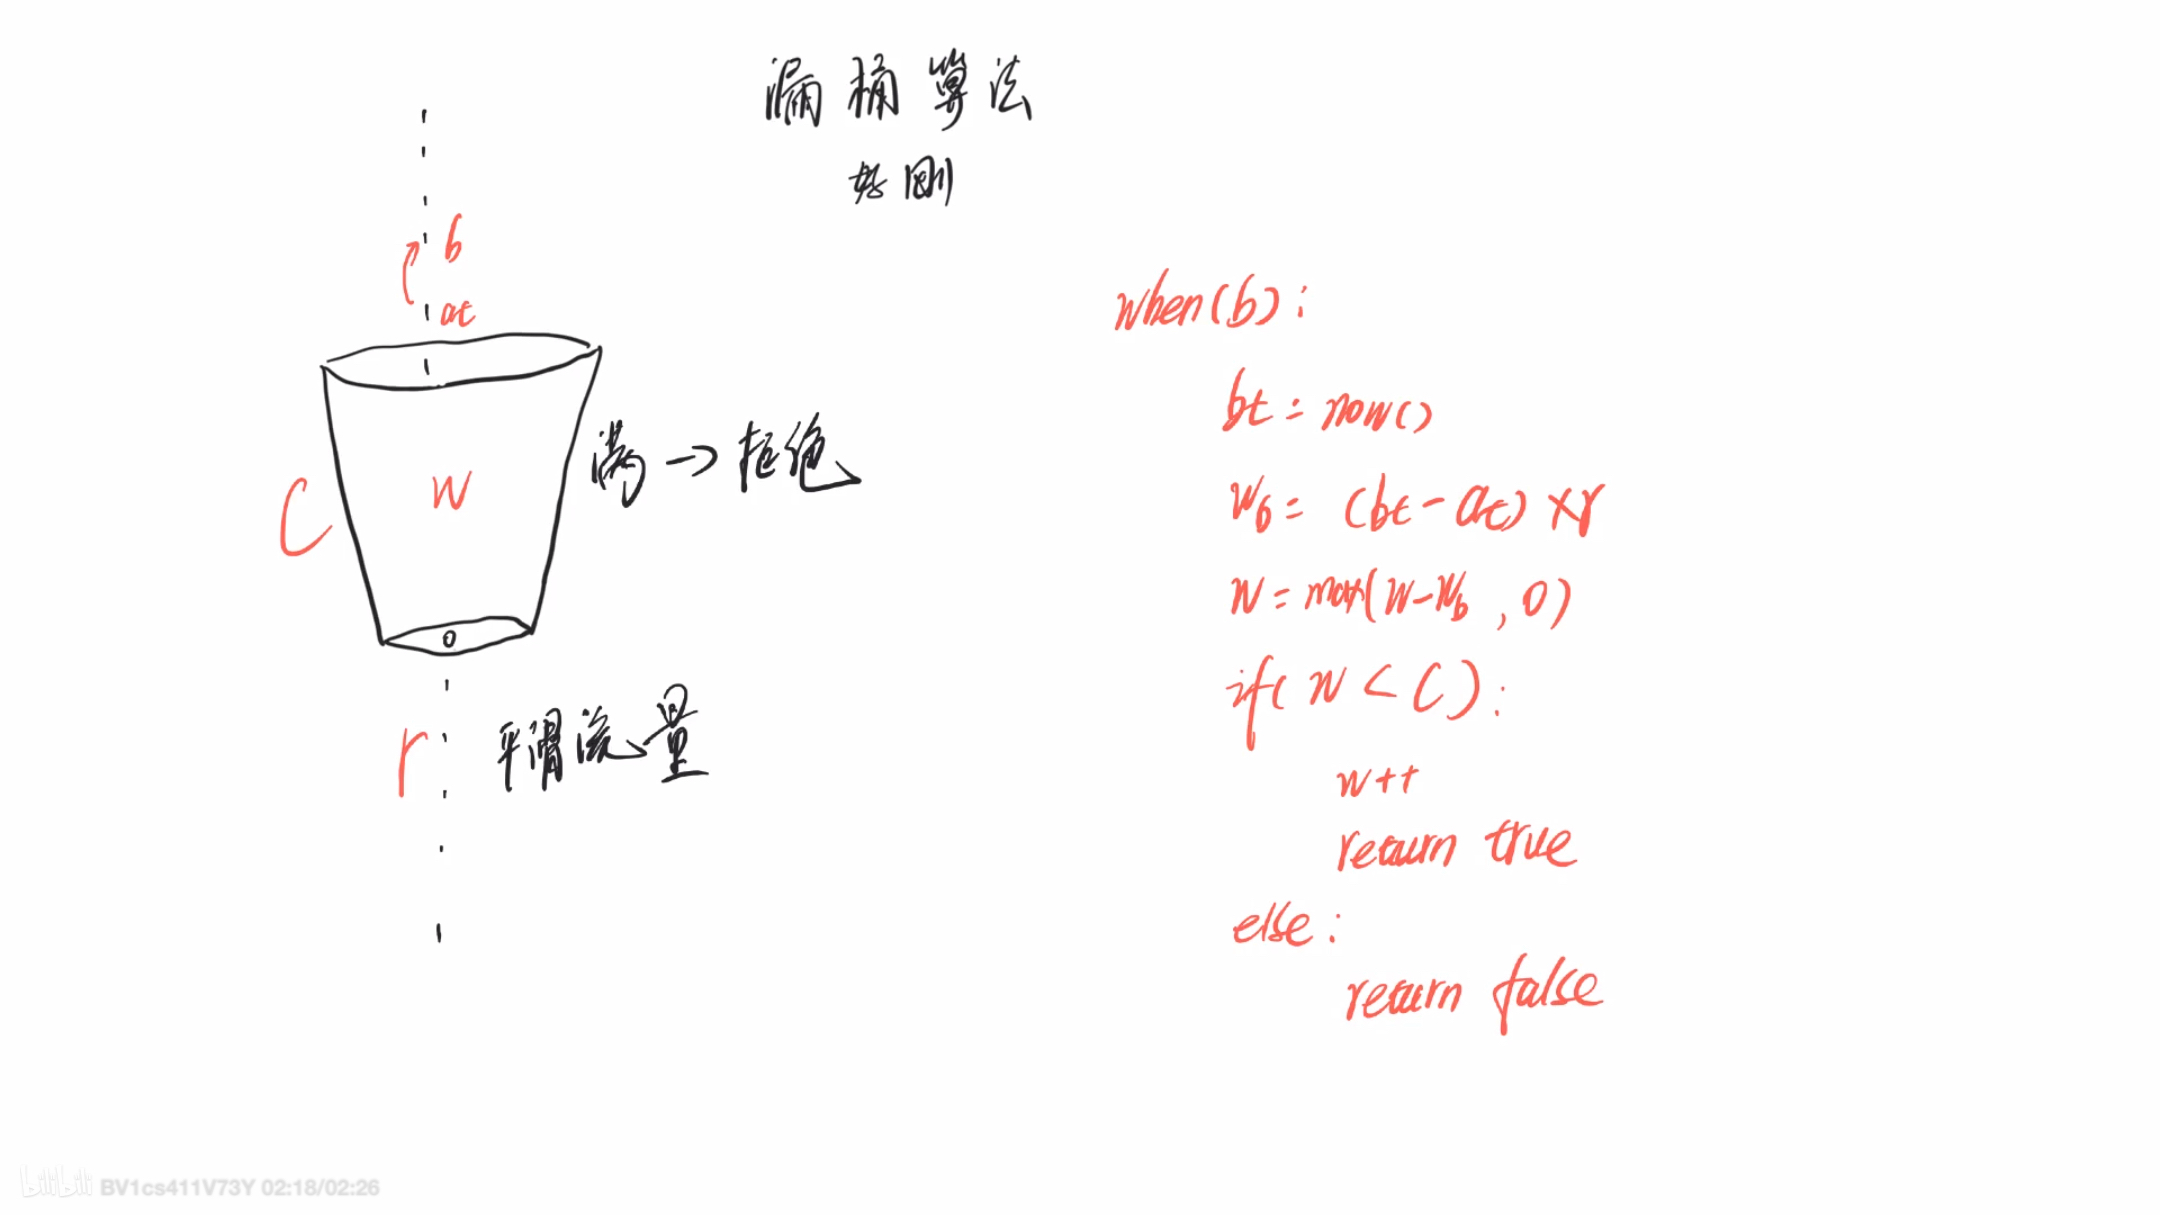 漏桶算法
好刚
b
at
C
W
满→拒绝
r
平滑流量
when(b):
bt = now()
Wb = (bt - at) × r
W = max(W - Wb, 0)
if( W < C ):
W++
return true
else:
return false
bilibili BV1cs411V73Y 02:18/02:26